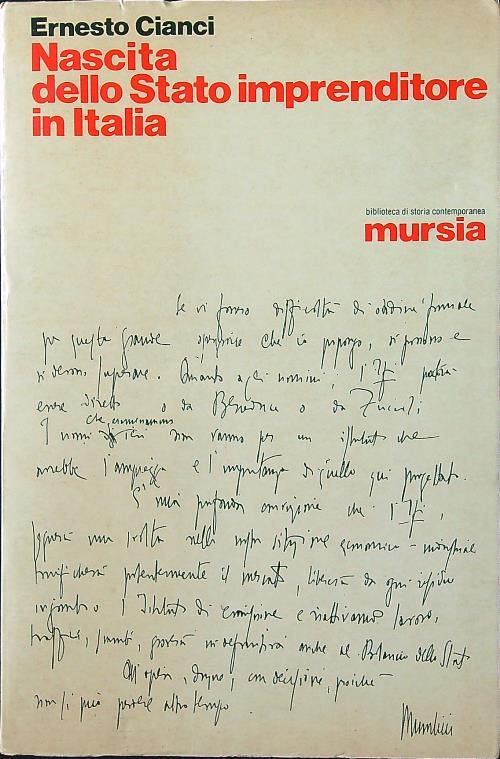 Ernesto Cianci
Nascita
dello Stato imprenditore
in Italia
biblioteca di storia contemporanea
mursia
Se vi fosse difficoltà di ordine formale
per questa grande operazione che io propongo, si possono e
si devono superare. Quanto agli uomini, l'
essere diretto o da Beneduce o da
che
I nomi non vanno per un istituto che
avrebbe l'ampiezza e l'importanza di quello qui progettato.
E' mia profonda convinzione che l'
una svolta nella situazione economica - industriale
potentemente il mercato, libererà da ogni
l'Istituto di emissione e riattivando lavoro,
traffici, scambi, gioverà in definitiva anche al Bilancio dello Stato
All'opera, dunque, con decisione, poiché
non si può perdere altro tempo.